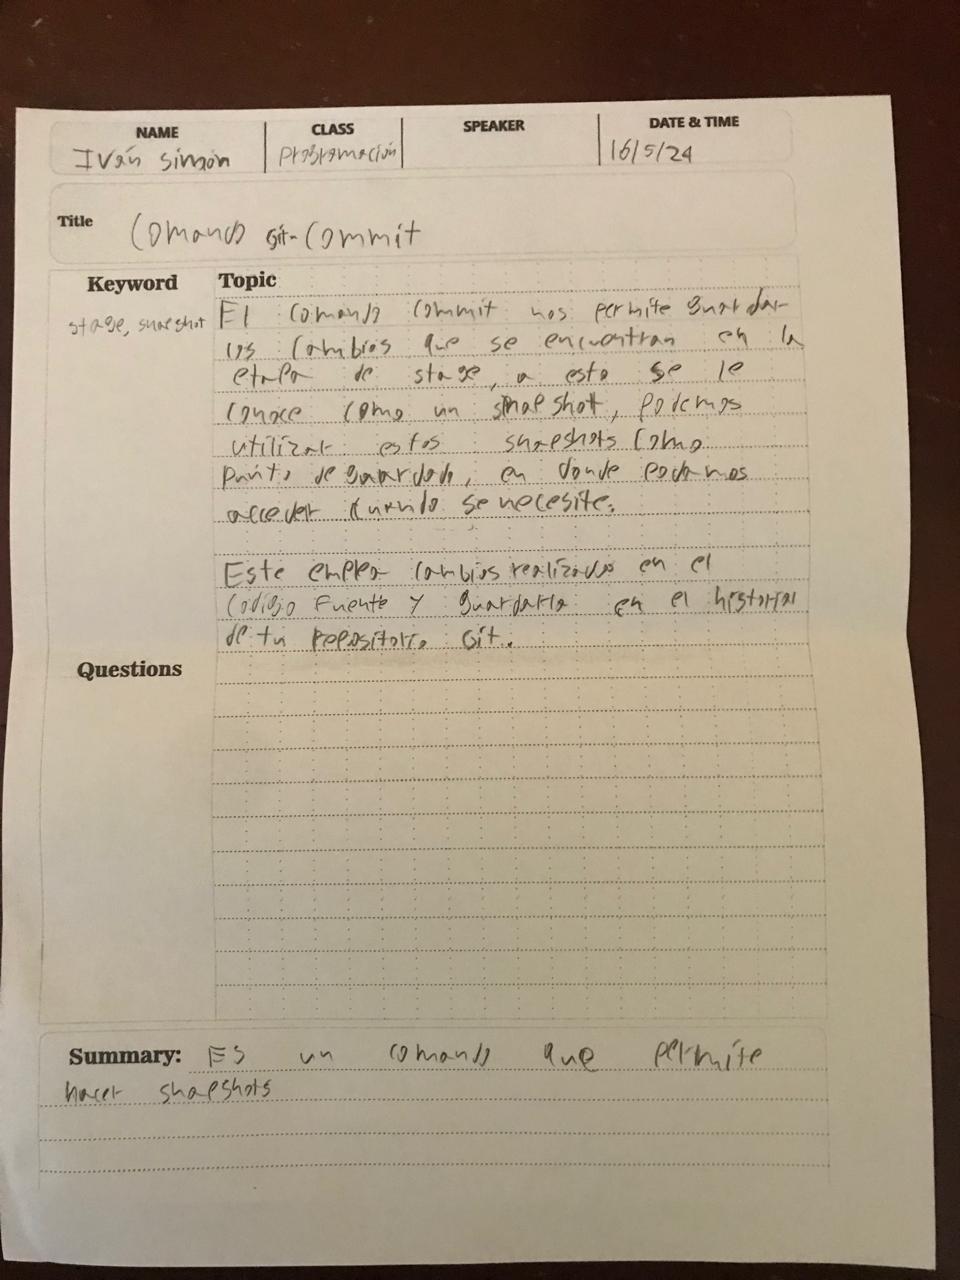 NAME CLASS SPEAKER DATE & TIME
Iván Simón Programación 16/5/24
Title Comando git-Commit
Keyword Topic
stage, snapshot El comando commit nos permite guardar
los cambios que se encuentran en la
etapa de stage, a esto se le
conoce como un snapshot, podemos
utilizar estos snapshots como
punto de guardado, en donde podamos
acceder cuando se necesite.
Este emplea cambios realizados en el
código fuente y guardarlo en el historial
de tu repositorio Git.
Questions
Summary: Es un comando que permite
hacer snapshots